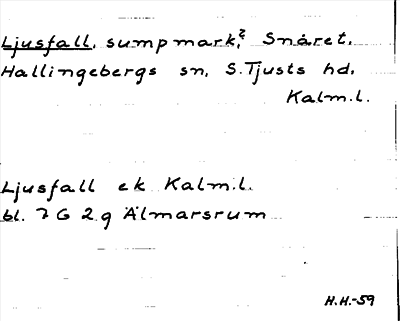 Ljusfall, sumpmark?, Snåret,
Hallingebergs sn, S. Tjusts hd,
Kalm.l.
Ljusfall ek Kalm.l.
bl. 7 G 2 g Älmarsrum
H.H.-59